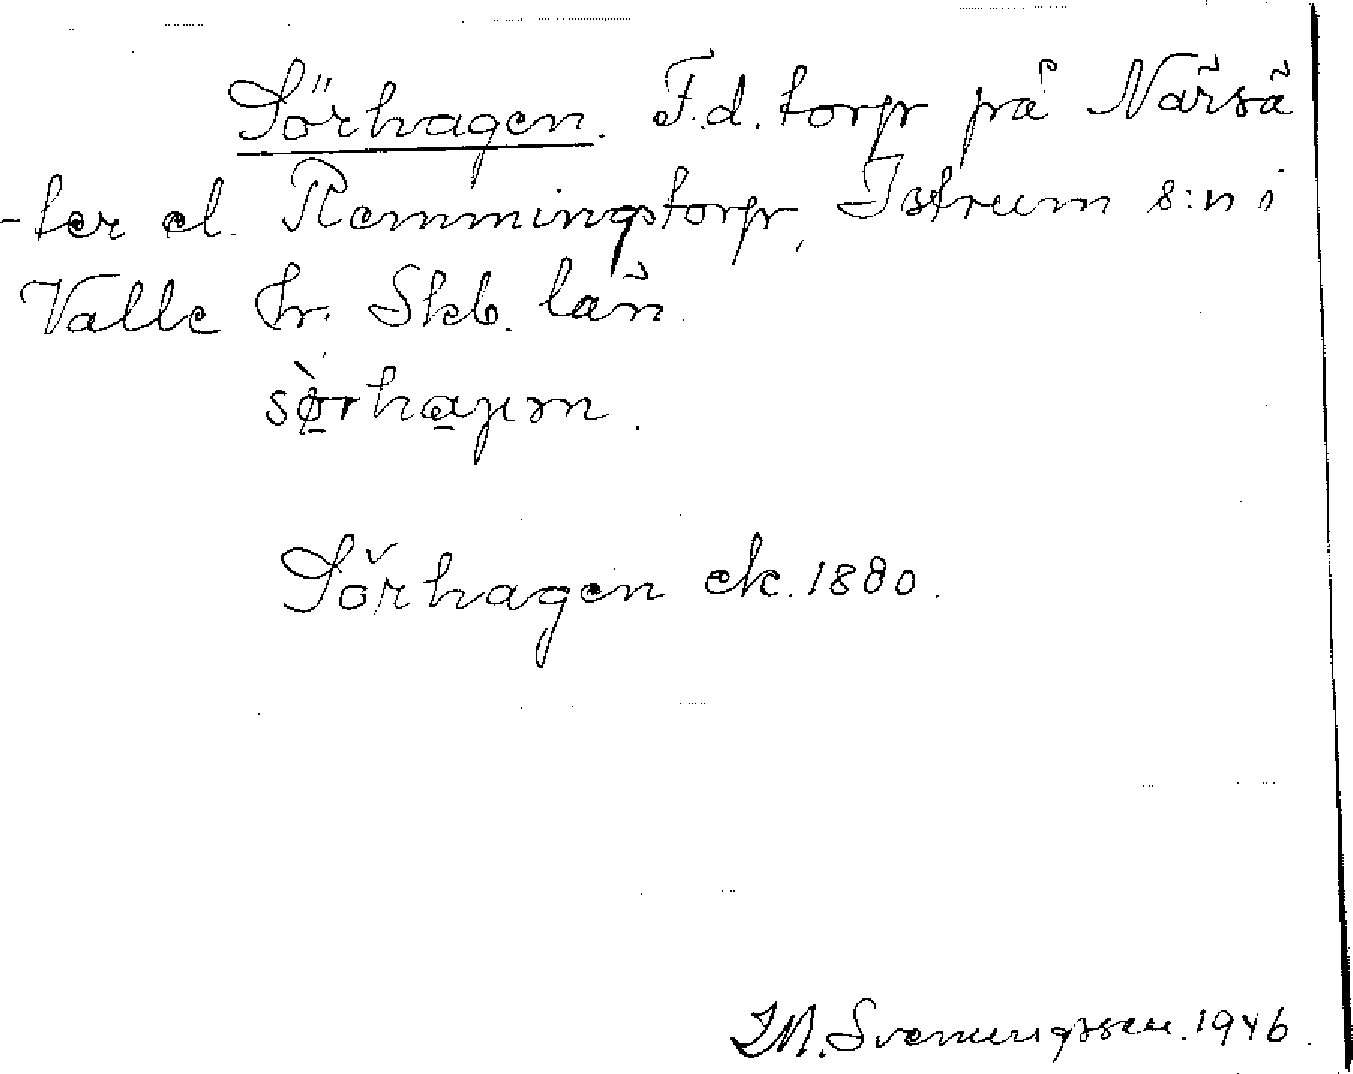 Sörhagen. F.d. torp på Närsä
-ter el. Remmingstorp, Istrum s:n i
Valle hr. Skb. län.
sø̀rhaɲɪn.
Sörhagen ek. 1880.
Svenungsson. 1946.